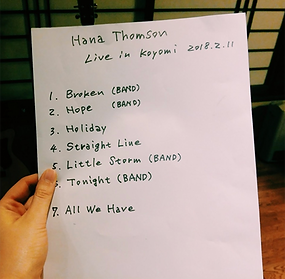 Hana Thomson
Live in Koyomi 2018.2.11
1. Broken (BAND)
2. Hope (BAND)
3. Holiday
4. Straight Line
5. Little Storm (BAND)
6. Tonight (BAND)
7. All We Have